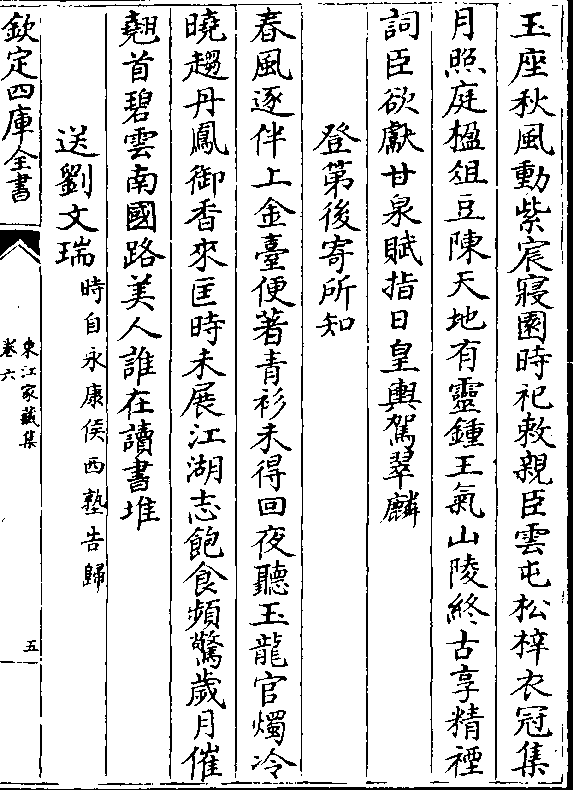 玉座秋風動紫宸寢園時祀敕親臣雲屯松梓衣冠集
月照庭楹俎豆陳天地有靈鍾王氣山陵終古享精禋
詞臣欲獻甘泉賦指日皇輿駕翠麟
登第後寄所知
春風逐伴上金臺便著青衫未得回夜聽玉龍官燭冷
曉趨丹鳳御香來匡時未展江湖志飽食頻驚歲月催
翹首碧雲南國路美人誰在讀書堆
送劉文瑞時自永康侯西塾告歸
欽定四庫全書
東江家藏集
卷六
五